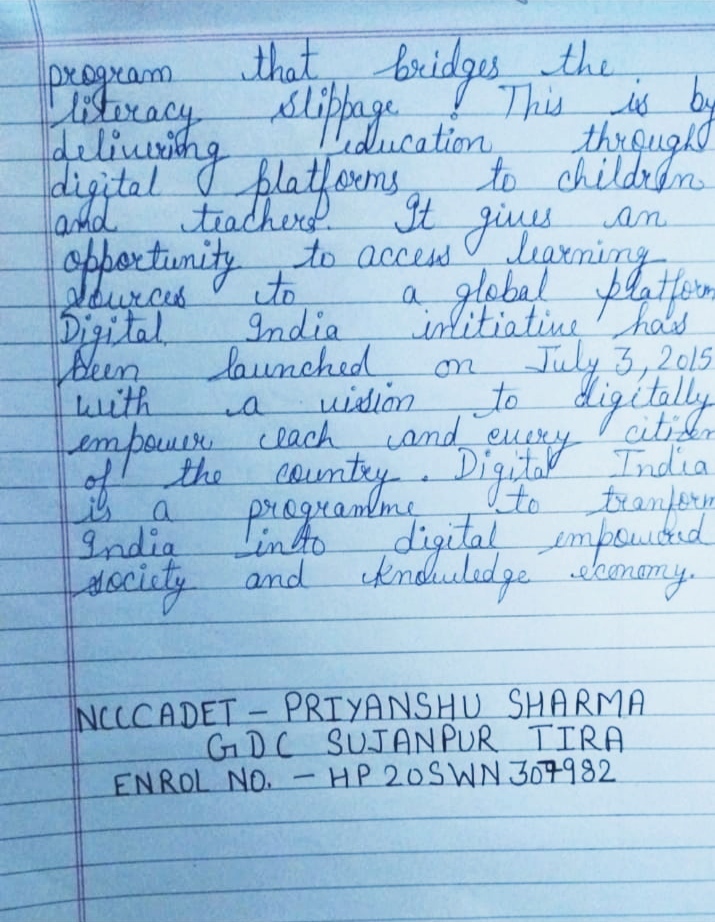 program that bridges the
literacy slippage ! This is by
delivering education through
digital platforms to children
and teachers. It gives an
opportunity to access learning
sources to a global platform
Digital India initiative has
been launched on July 3, 2015
with a vision to digitally
empower each and every citizen
of the country. Digital India
is a programme to tranform
India into digital empowered
society and knowledge economy.
NCCCADET - PRIYANSHU SHARMA
GDC SUJANPUR TIRA
ENROL NO. - HP20SWN307982